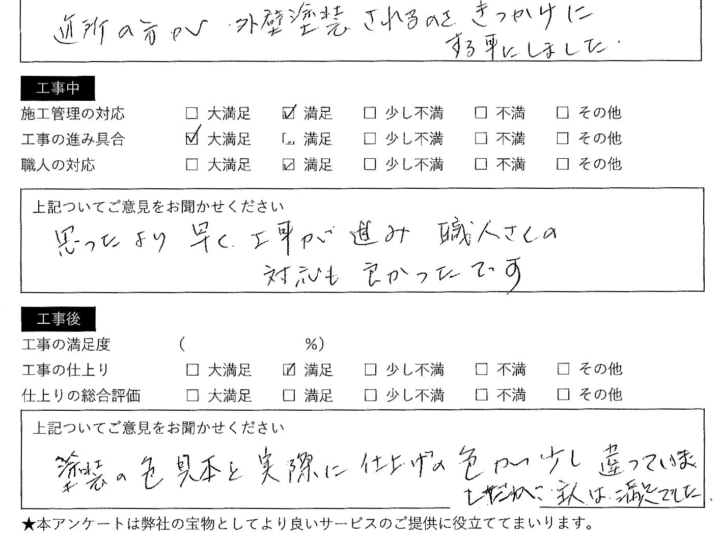 近所の方が 外壁塗装されるのをきっかけに
する事にしました.
工事中
施工管理の対応 □ 大満足 ☑ 満足 □ 少し不満 □ 不満 □ その他
工事の進み具合 ☑ 大満足 □ 満足 □ 少し不満 □ 不満 □ その他
職人の対応 □ 大満足 ☑ 満足 □ 少し不満 □ 不満 □ その他
上記ついてご意見をお聞かせください
思ったより早く、工事が進み 職人さんの
対応も良かったです
工事後
工事の満足度 ( %)
工事の仕上り □ 大満足 ☑ 満足 □ 少し不満 □ 不満 □ その他
仕上りの総合評価 □ 大満足 □ 満足 □ 少し不満 □ 不満 □ その他
上記ついてご意見をお聞かせください
塗装の色見本と実際に仕上げの色が 少し違っていま
したが、主人は満足でした.
★本アンケートは弊社の宝物としてより良いサービスのご提供に役立ててまいります。